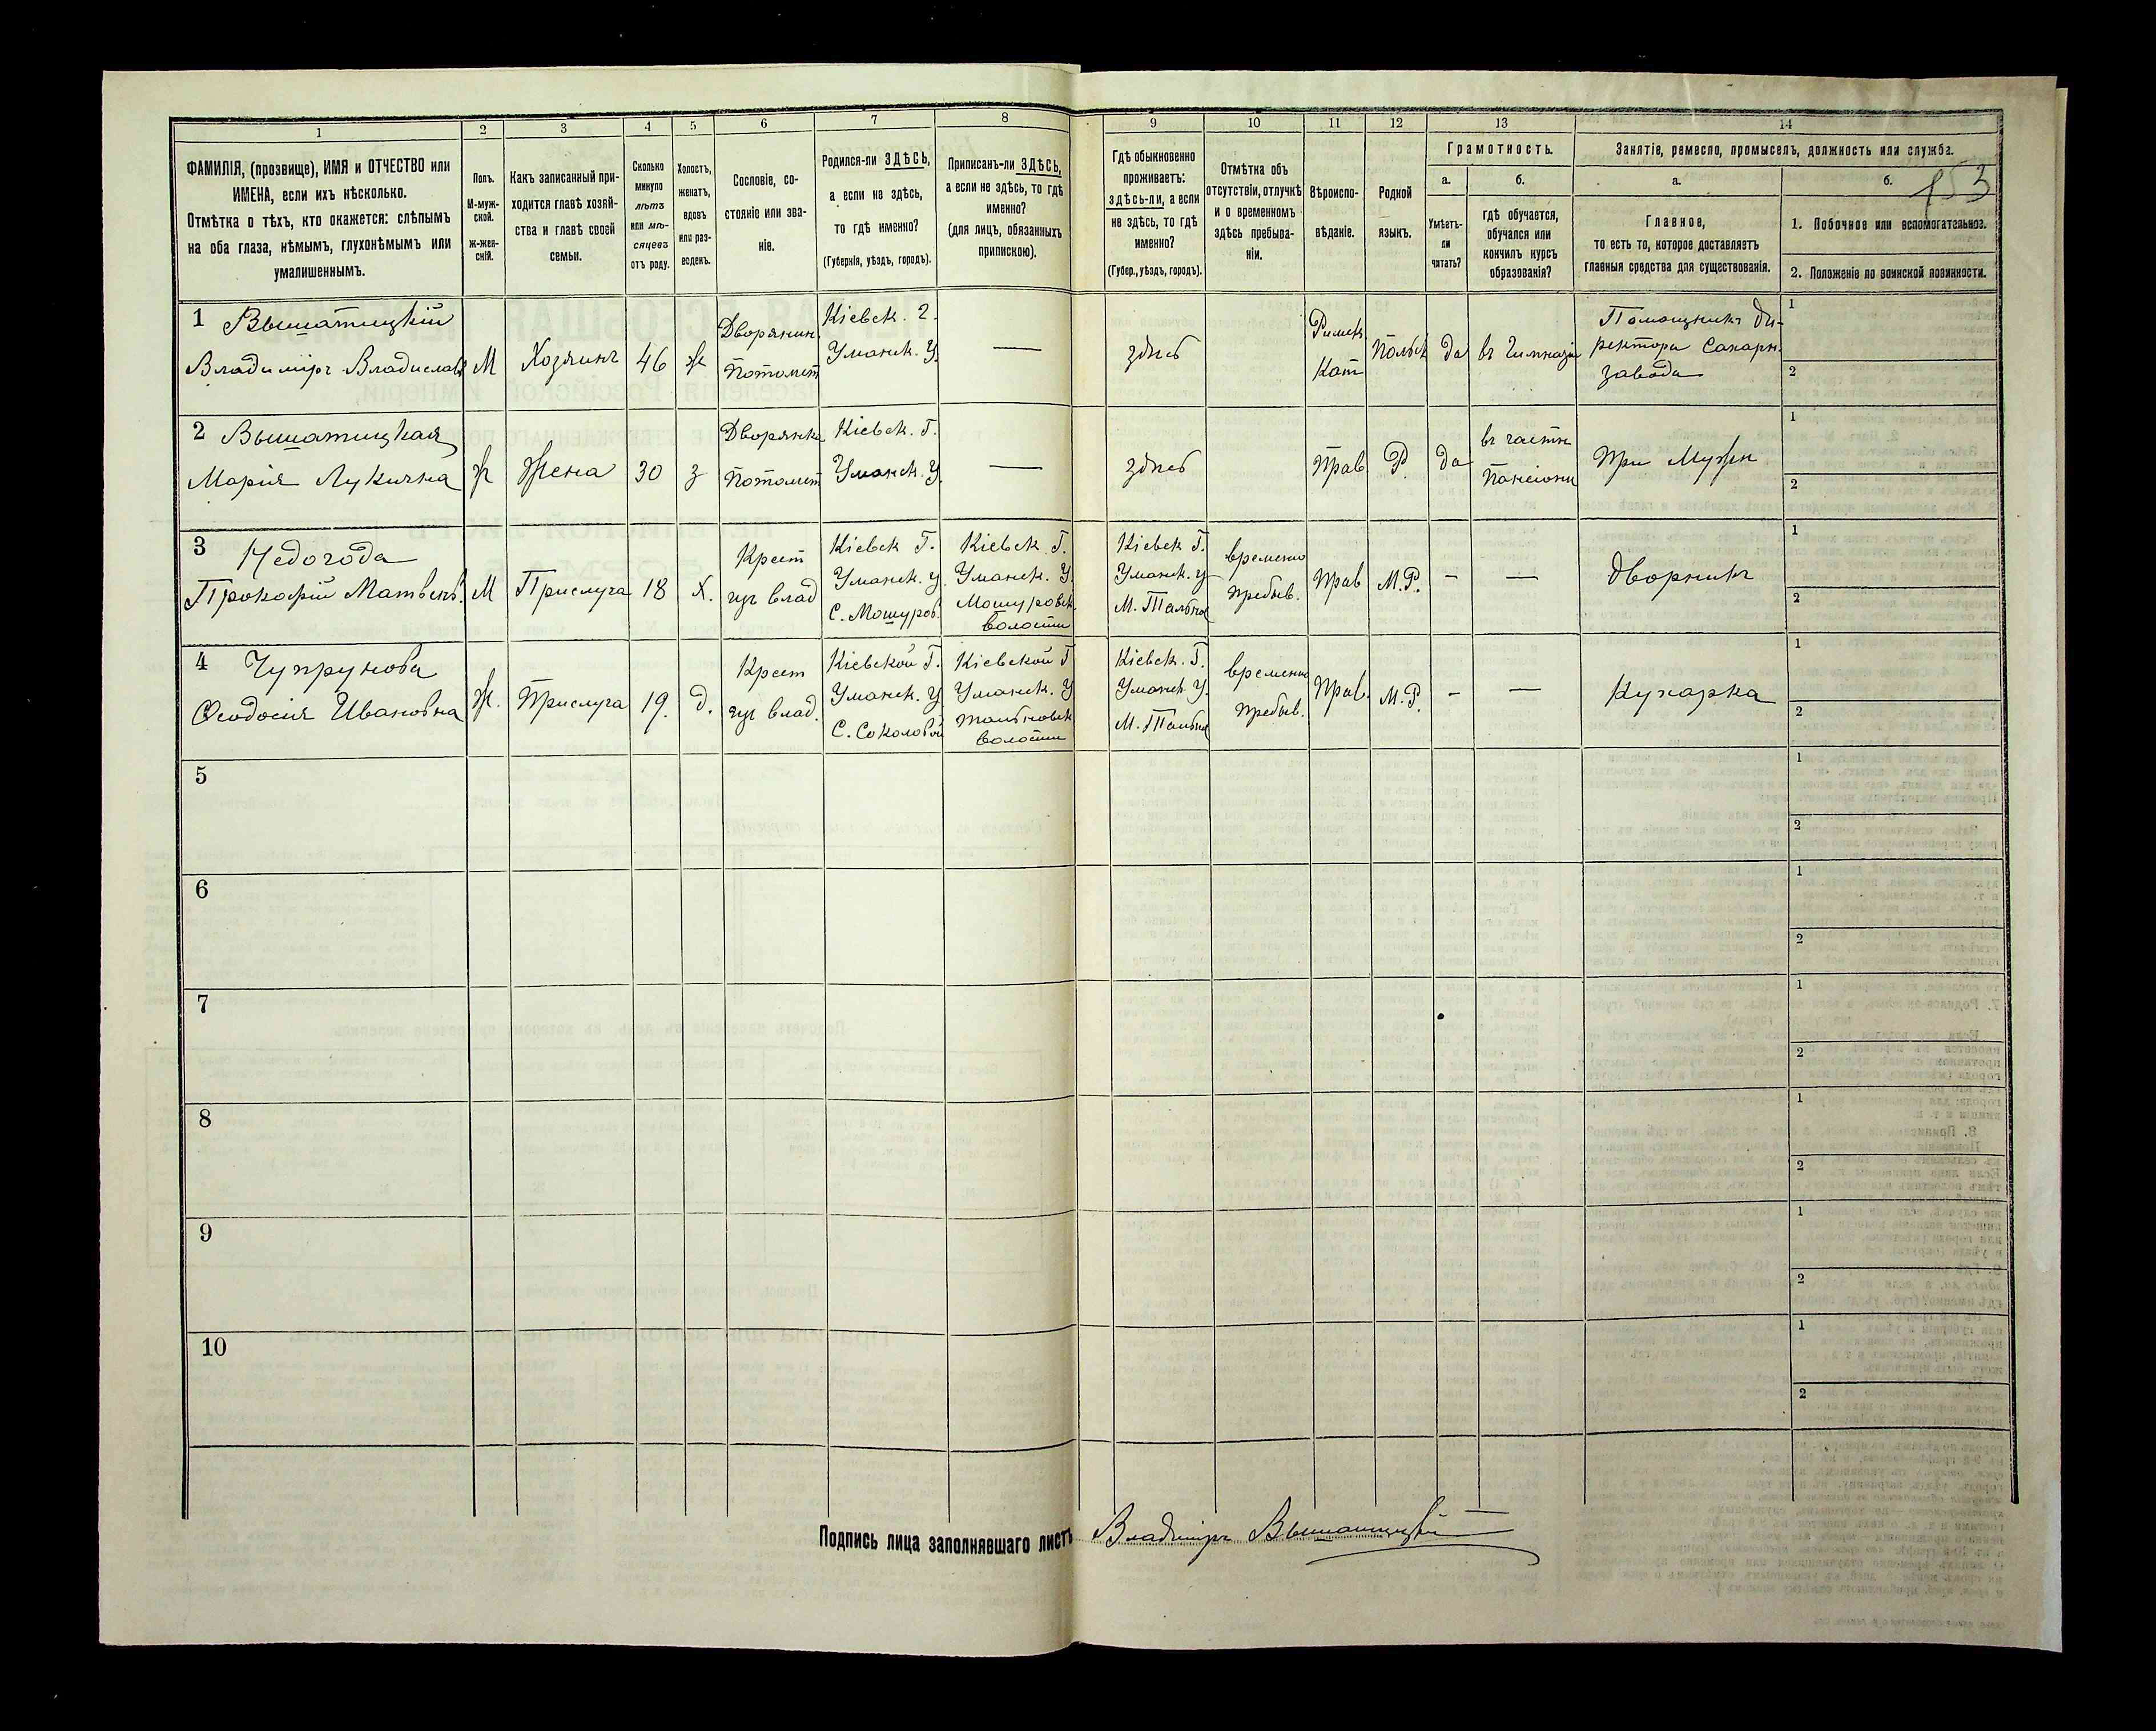 1 2 3 4 5 6 7 8 9 10 11 12 13 14
ФАМИЛІЯ, (прозвище), ИМЯ и ОТЧЕСТВО или
ИМЕНА, если ихъ нѣсколько.
Отмѣтка о тѣхъ, кто окажется: слѣпымъ
на оба глаза, нѣмымъ, глухонѣмымъ или
умалишеннымъ.
Полъ.
М-муж-
ской.
Ж-жен-
скій.
Какъ записанный при-
ходится главѣ хозяй-
ства и главѣ своей
семьи.
Сколько
минуло
лѣтъ
или мѣ-
сяцевъ
отъ роду.
Холостъ,
женатъ,
вдовъ
или раз-
веденъ.
Сословіе, со-
стояніе или зва-
ніе.
Родился-ли ЗДѢСЬ,
а если не здѣсь,
то гдѣ именно?
(Губернія, уѣздъ, городъ).
Приписанъ-ли ЗДѢСЬ,
а если не здѣсь, то гдѣ
именно?
(для лицъ, обязанныхъ
припискою).
Гдѣ обыкновенно
проживаетъ:
здѣсь-ли, а если
не здѣсь, то гдѣ
именно?
(Губер., уѣздъ, городъ).
Отмѣтка объ
отсутствіи, отлучкѣ
и о временномъ
здѣсь пребыва-
ніи.
Вѣроиспо-
вѣданіе.
Родной
языкъ.
Грамотность.
а.
Умѣетъ-
ли
читать?
б.
гдѣ обучается,
обучался или
кончилъ курсъ
образованія?
Занятіе, ремесло, промыселъ, должность или служба.
а.
Главное,
то есть то, которое доставляетъ
главныя средства для существованія.
б.
153
1. Побочное или вспомогательное.
2. Положеніе по воинской повинности.
1 Вышатицкій
Владиміръ Владислав
М
Хозяинъ
46
ж
Дворянин
Потомст
Кіевск. г.
Уманск. У.
—
здѣсь
Римск
Кат
Польск
да
въ Гимназіи
Помощникъ ди-
ректора Сахарн.
завода
1
2
2 Вышатицкая
Марія Лукична
ж
Жена
30
з
Дворянка
Потомст
Кіевск. Г.
Уманск. У.
—
здѣсь
Прав
Р.
да
въ частн
Пансіоны
При Мужи
1
2
3 Недогода
Прокофій Матвѣевъ.
М
Прислуга
18
х.
Крест
изъ влад
Кіевск Г.
Уманск. У
С. Мошуров.
Кіевск. Г.
Уманск. У.
Мошуровск.
волости
Кіевск Г.
Уманск. У
М. Тальное
временно
пребыв.
Прав
М.Р.
-
—
Дворникъ
1
2
4 Чупрунова
Ѳеодосія Ивановна
Ж.
Прислуга
19.
д.
Крест
изъ влад.
Кіевской Г.
Уманск. У
С. Соколовой
Кіевской Г
Уманск. У
Тальновск.
волости
Кіевск. Г.
Уманск. У.
М. Тальное
временно
пребыв.
Прав.
М.Р.
-
—
Кухарка
1
2
5
1
2
6
1
2
7
1
2
8
1
2
9
1
2
10
1
2
Подпись лица заполнявшаго листъ Владиміръ Вышатицкій